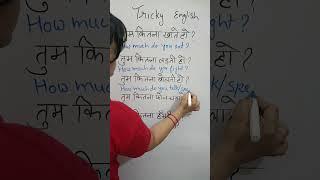 Tricky English
तुम कितना खाते हो ?
How much do you eat ?
तुम कितना लड़ती हो ?
How much do you fight ?
तुम कितना बोलते हो ?
How much do you talk/spe
तुम कितना फोन
कितना